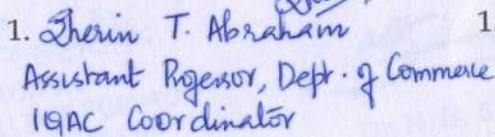 1. Sherin T. Abraham 1.
Assistant Professor, Dept. of Commerce
IQAC Coordinator